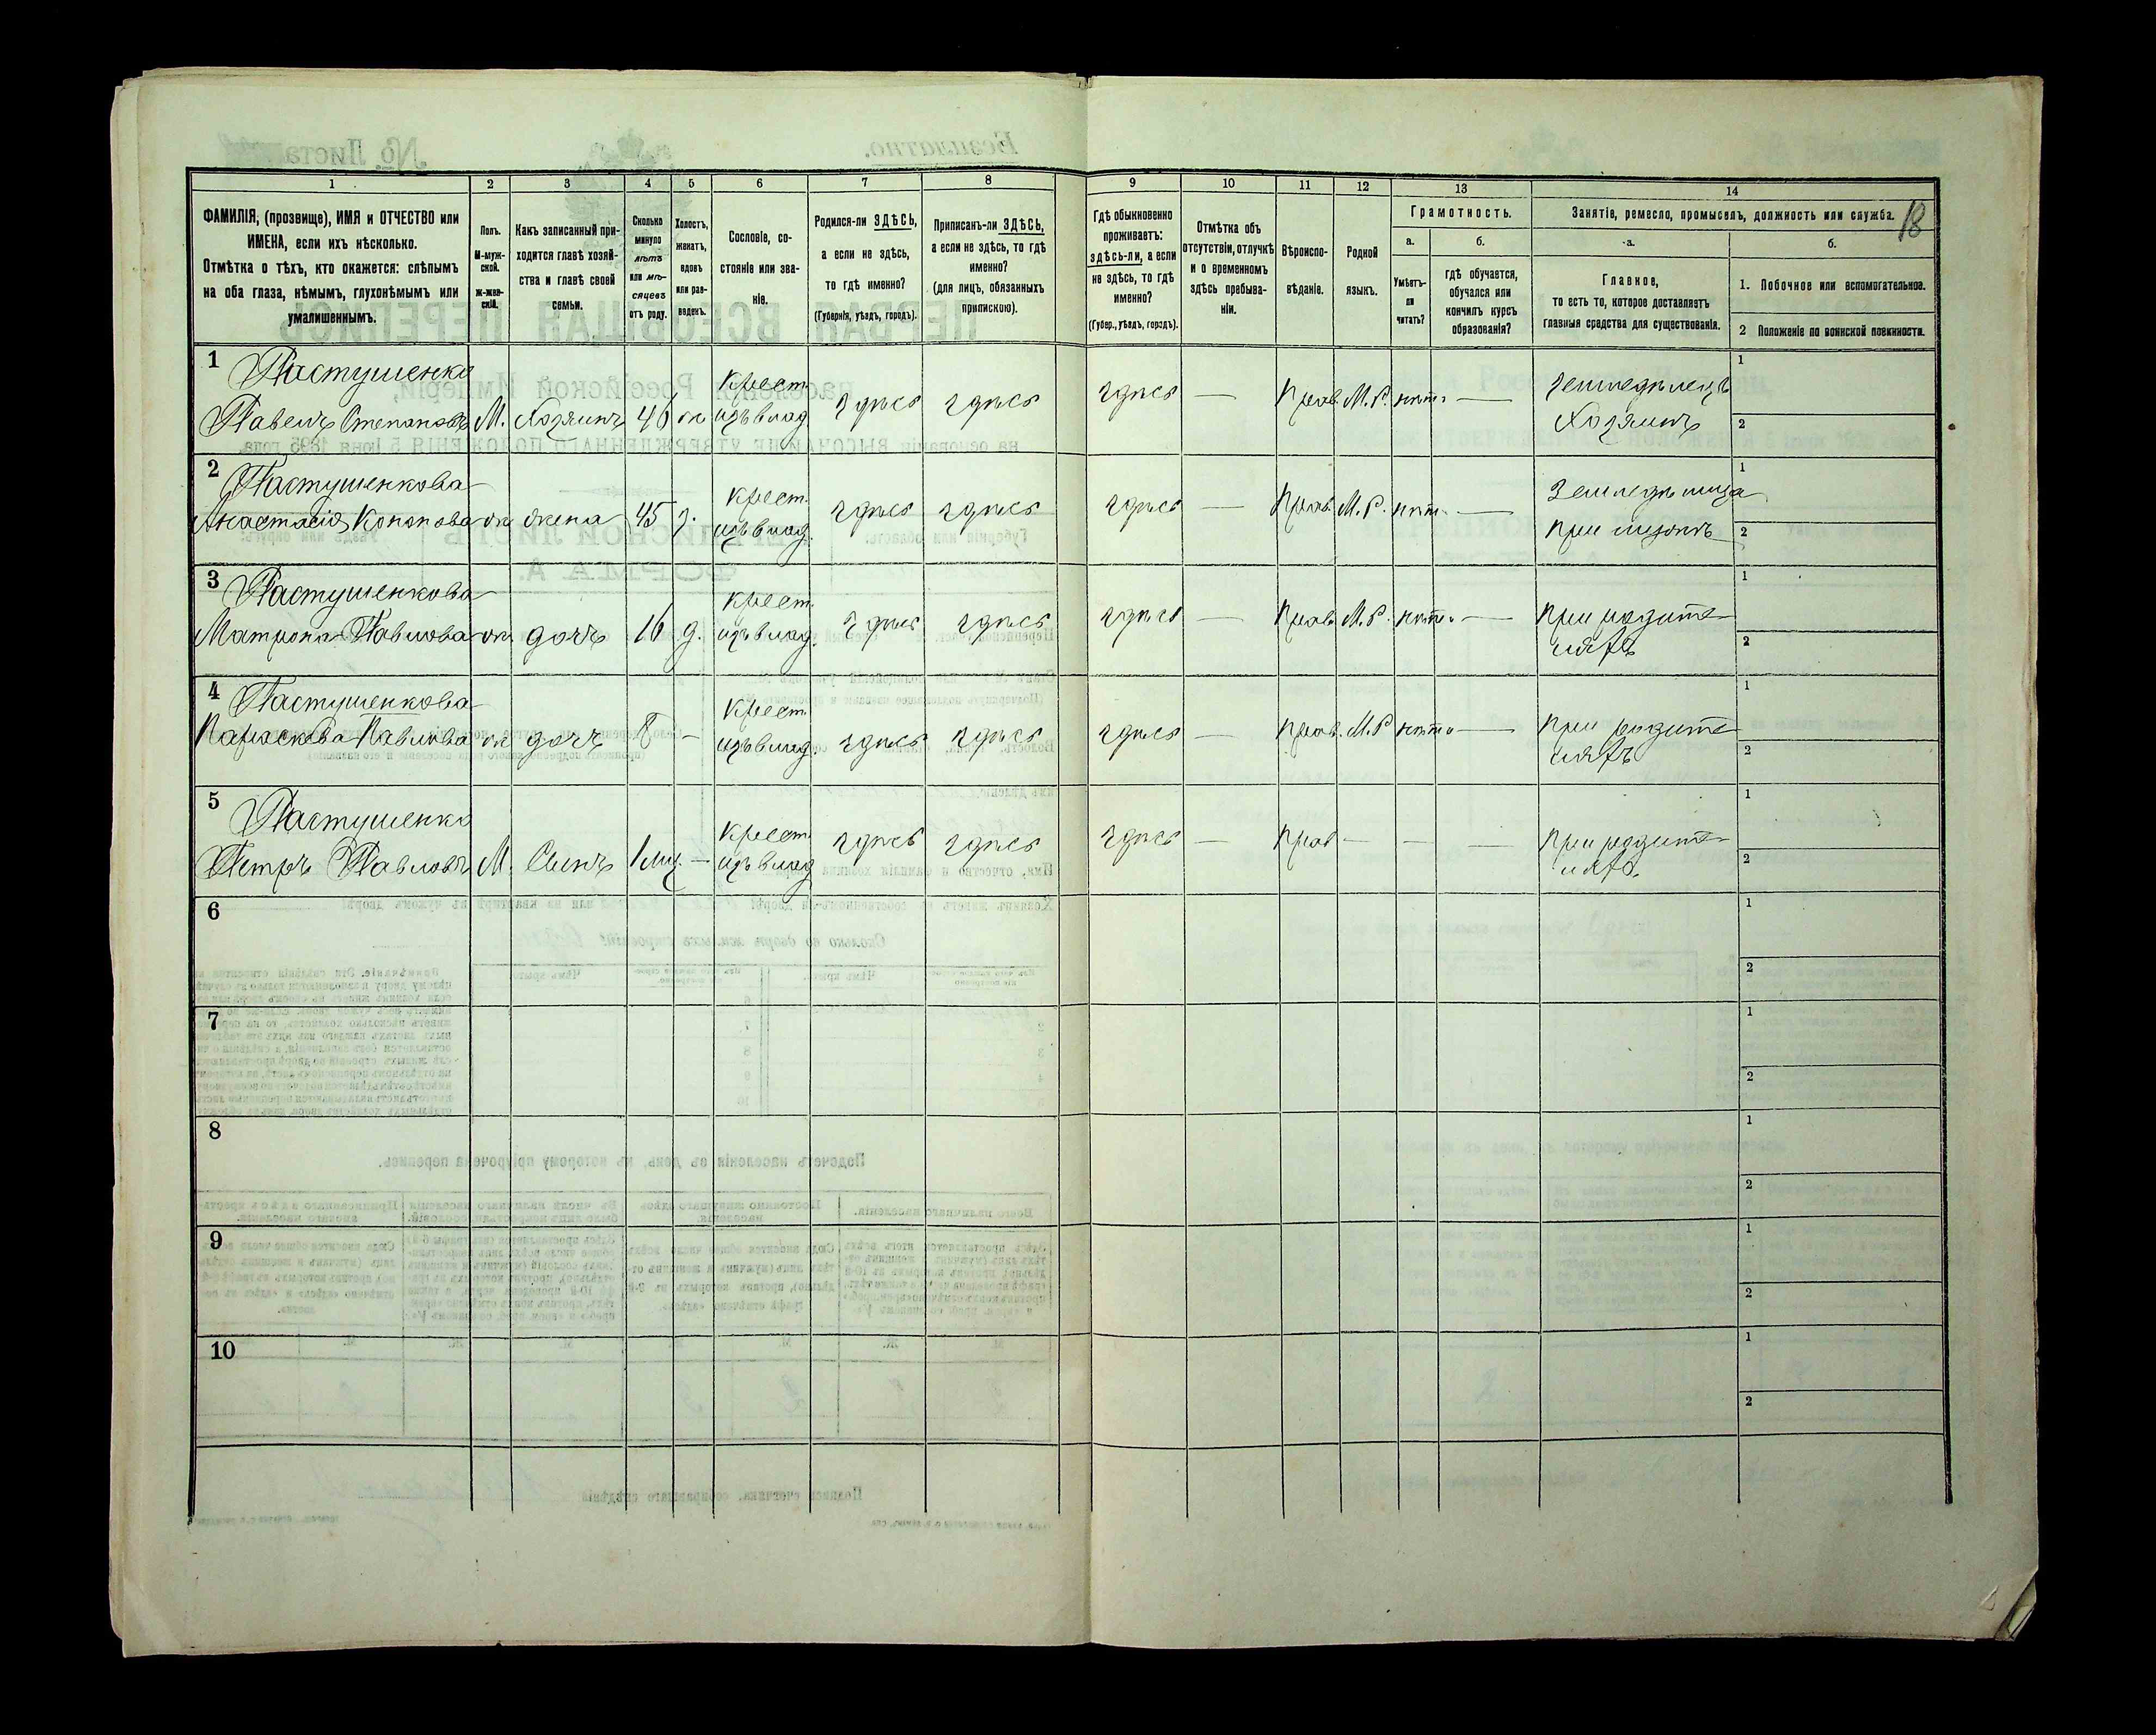 1 2 3 4 5 6 7 8 9 10 11 12 13 14
18
ФАМИЛІЯ, (прозвище), ИМЯ и ОТЧЕСТВО или
ИМЕНА, если ихъ нѣсколько.
Отмѣтка о тѣхъ, кто окажется: слѣпымъ
на оба глаза, нѣмымъ, глухонѣмымъ или
умалишеннымъ.
Полъ.
М-муж-
ской.
Ж-жен-
скій.
Какъ записанный при-
ходится главѣ хозяй-
ства и главѣ своей
семьи.
Сколько
минуло
лѣтъ
или мѣ-
сяцевъ
отъ роду.
Холостъ,
женатъ,
вдовъ
или раз-
веденъ.
Сословіе, со-
стояніе или зва-
ніе.
Родился-ли ЗДѢСЬ,
а если не здѣсь,
то гдѣ именно?
(Губернія, уѣздъ, городъ).
Приписанъ-ли ЗДѢСЬ,
а если не здѣсь, то гдѣ
именно?
(для лицъ, обязанныхъ
припискою).
Гдѣ обыкновенно
проживаетъ:
здѣсь-ли, а если
не здѣсь, то гдѣ
именно?
(Губер., уѣздъ, городъ).
Отмѣтка объ
отсутствіи, отлучкѣ
и о временномъ
здѣсь пребыва-
ніи.
Вѣроиспо-
вѣданіе.
Родной
языкъ.
Грамотность.
а.
Умѣетъ-
ли
читать?
б.
гдѣ обучается,
обучался или
кончилъ курсъ
образованія?
Занятіе, ремесло, промыселъ, должность или служба.
а.
Главное,
то есть то, которое доставляетъ
главныя средства для существованія.
б.
1. Побочное или вспомогательное.
2 Положеніе по воинской повинности.
1 Пастушенко Крест. 1
Павелъ Степановъ М. Хозяинъ 46 ж изъ влад. здѣсь здѣсь здѣсь — Прав. М. Р. нѣтъ — Земледѣлецъ
Хозяинъ 2
2 Пастушенкова Крест. 1
Анастасія Кононова ж жена 45 з. изъ влад. здѣсь здѣсь здѣсь — Прав. М. Р. нѣтъ — Земледѣлица
при мужѣ 2
3 Пастушенкова Крест. 1
Матрона Павлова ж дочь 16 д. изъ влад. здѣсь здѣсь здѣсь — Прав. М. Р. нѣтъ — При родите-
ляхъ 2
4 Пастушенкова Крест. 1
Параскева Павлова ж дочь 8 — изъ влад. здѣсь здѣсь здѣсь — Прав. М. Р нѣтъ — При родите
ляхъ 2
5 Пастушенко Крест. 1
Петръ Павловъ М. Сынъ 1 мѣ. — изъ влад здѣсь здѣсь здѣсь — Прав — — — При родите-
ляхъ. 2
6 1
2
7 1
2
8 1
2
9 1
2
10 1
2